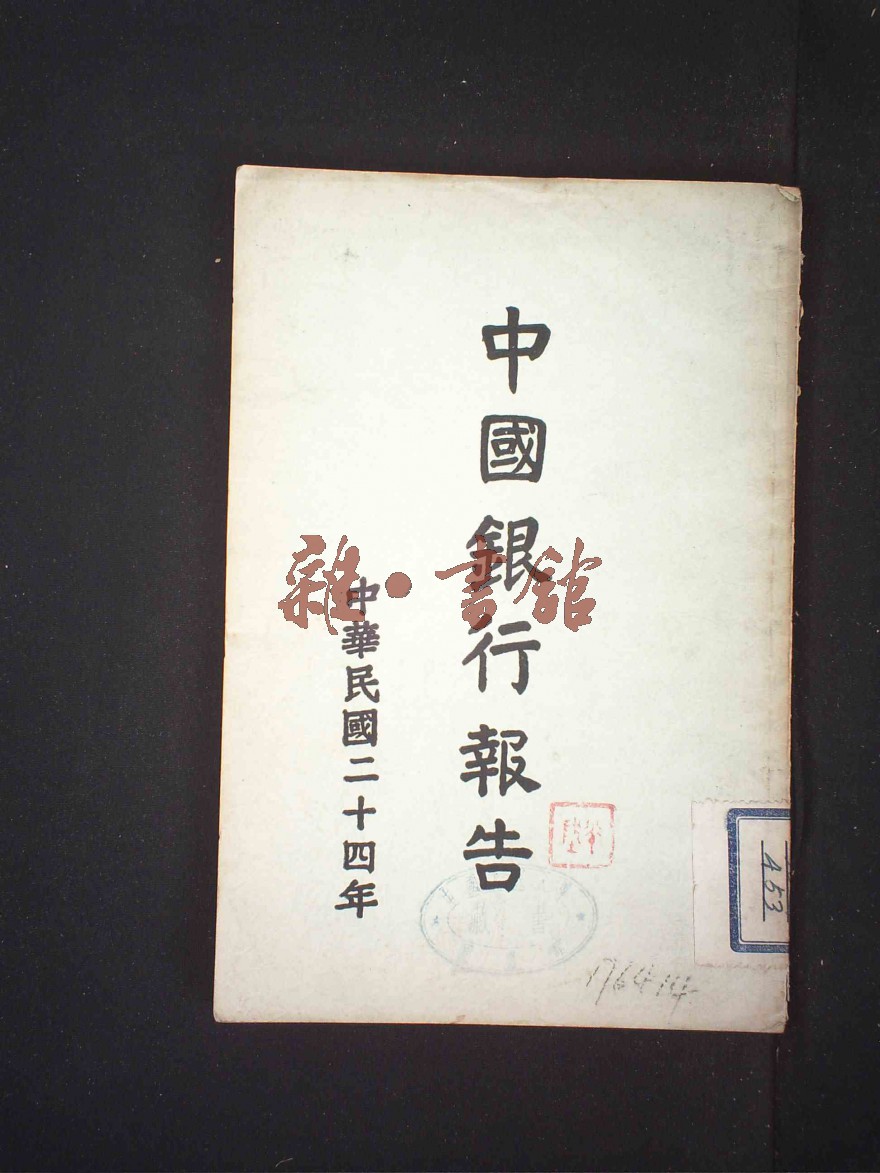 中國銀行報告
中華民國二十四年
雜·書館
453